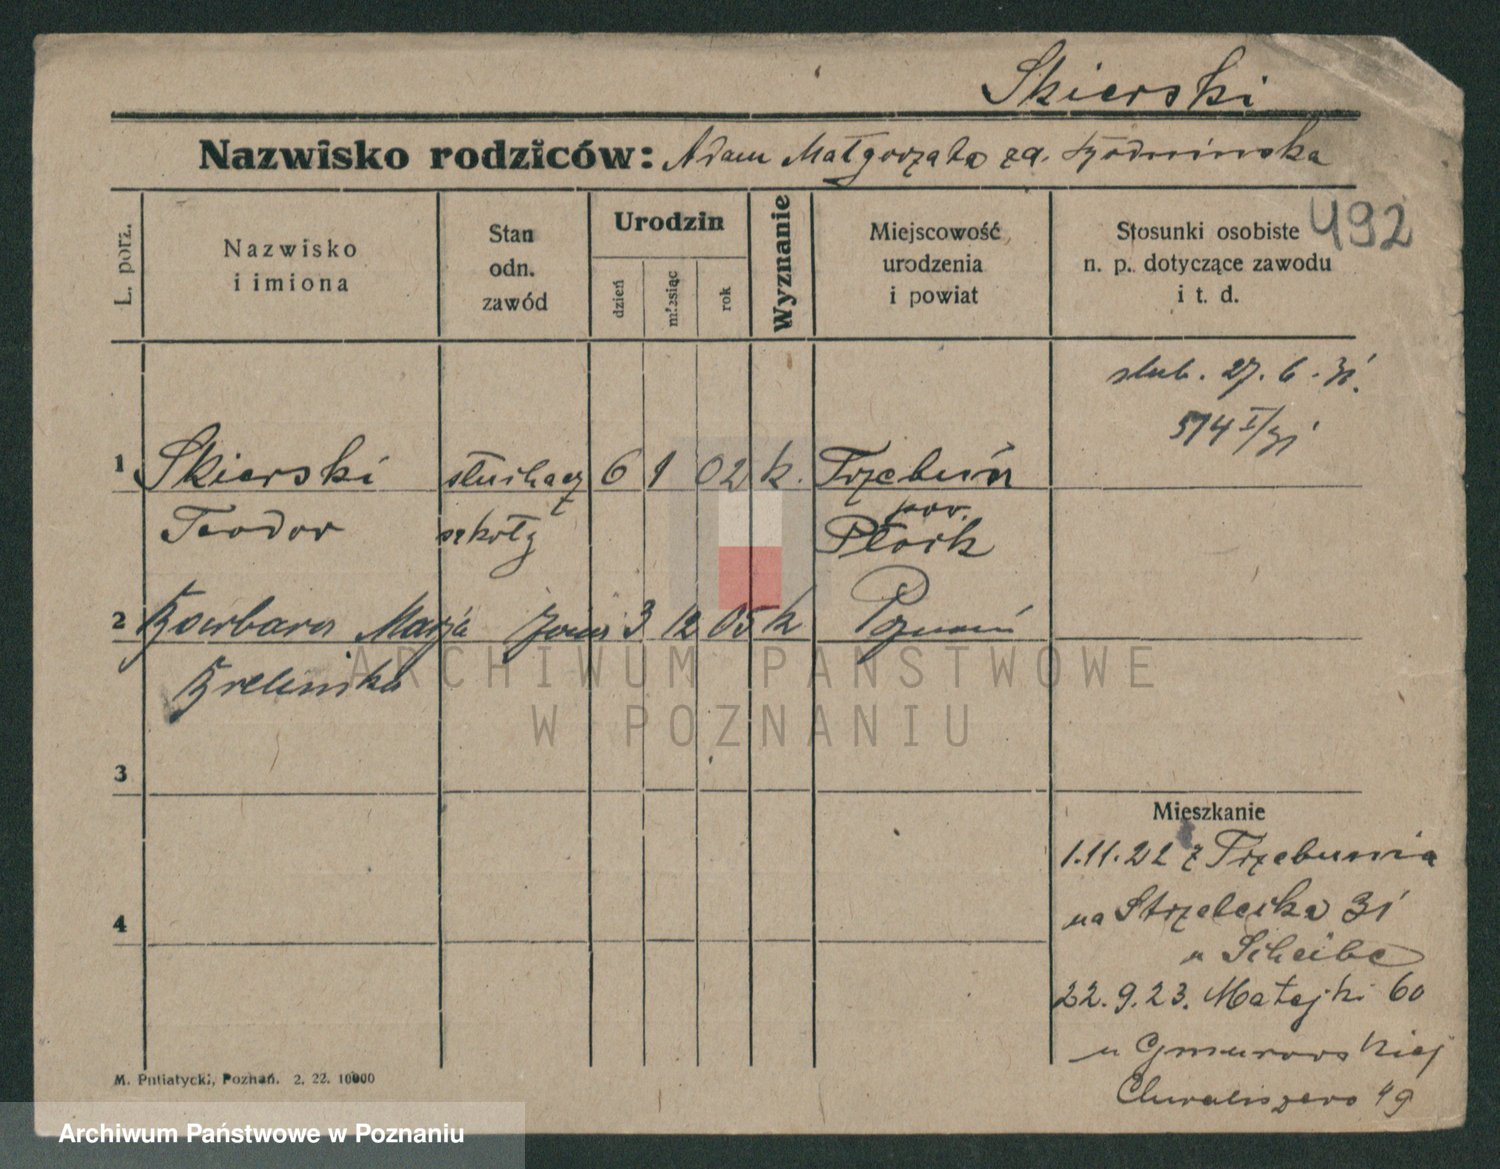 Skierski
Nazwisko rodziców: Adam Małgorzata
492
L. porz.
Nazwisko
i imiona
Stan
odn.
zawód
Urodzin
dzień
miesiąc
rok
Wyznanie
Miejscowość
urodzenia
i powiat
Stosunki osobiste
n. p. dotyczące zawodu
i t. d.
27. 6.
1 Skierski słuchacz 6 1 02 k. Trzebuń
Teodor szkoły pow. Płock
2 Barbara Marja żona 3 12 05 k Poznań
3
4
Mieszkanie
1.11.22 z Trzebunia
na Strzelecka 31
u Scheibe
22.9.23. Matejki 60
u Gmurowskiej
Chwaliszewo 49
M. Putiatycki, Poznań. 2. 22. 10000
ARCHIWUM PAŃSTWOWE
W POZNANIU
Archiwum Państwowe w Poznaniu